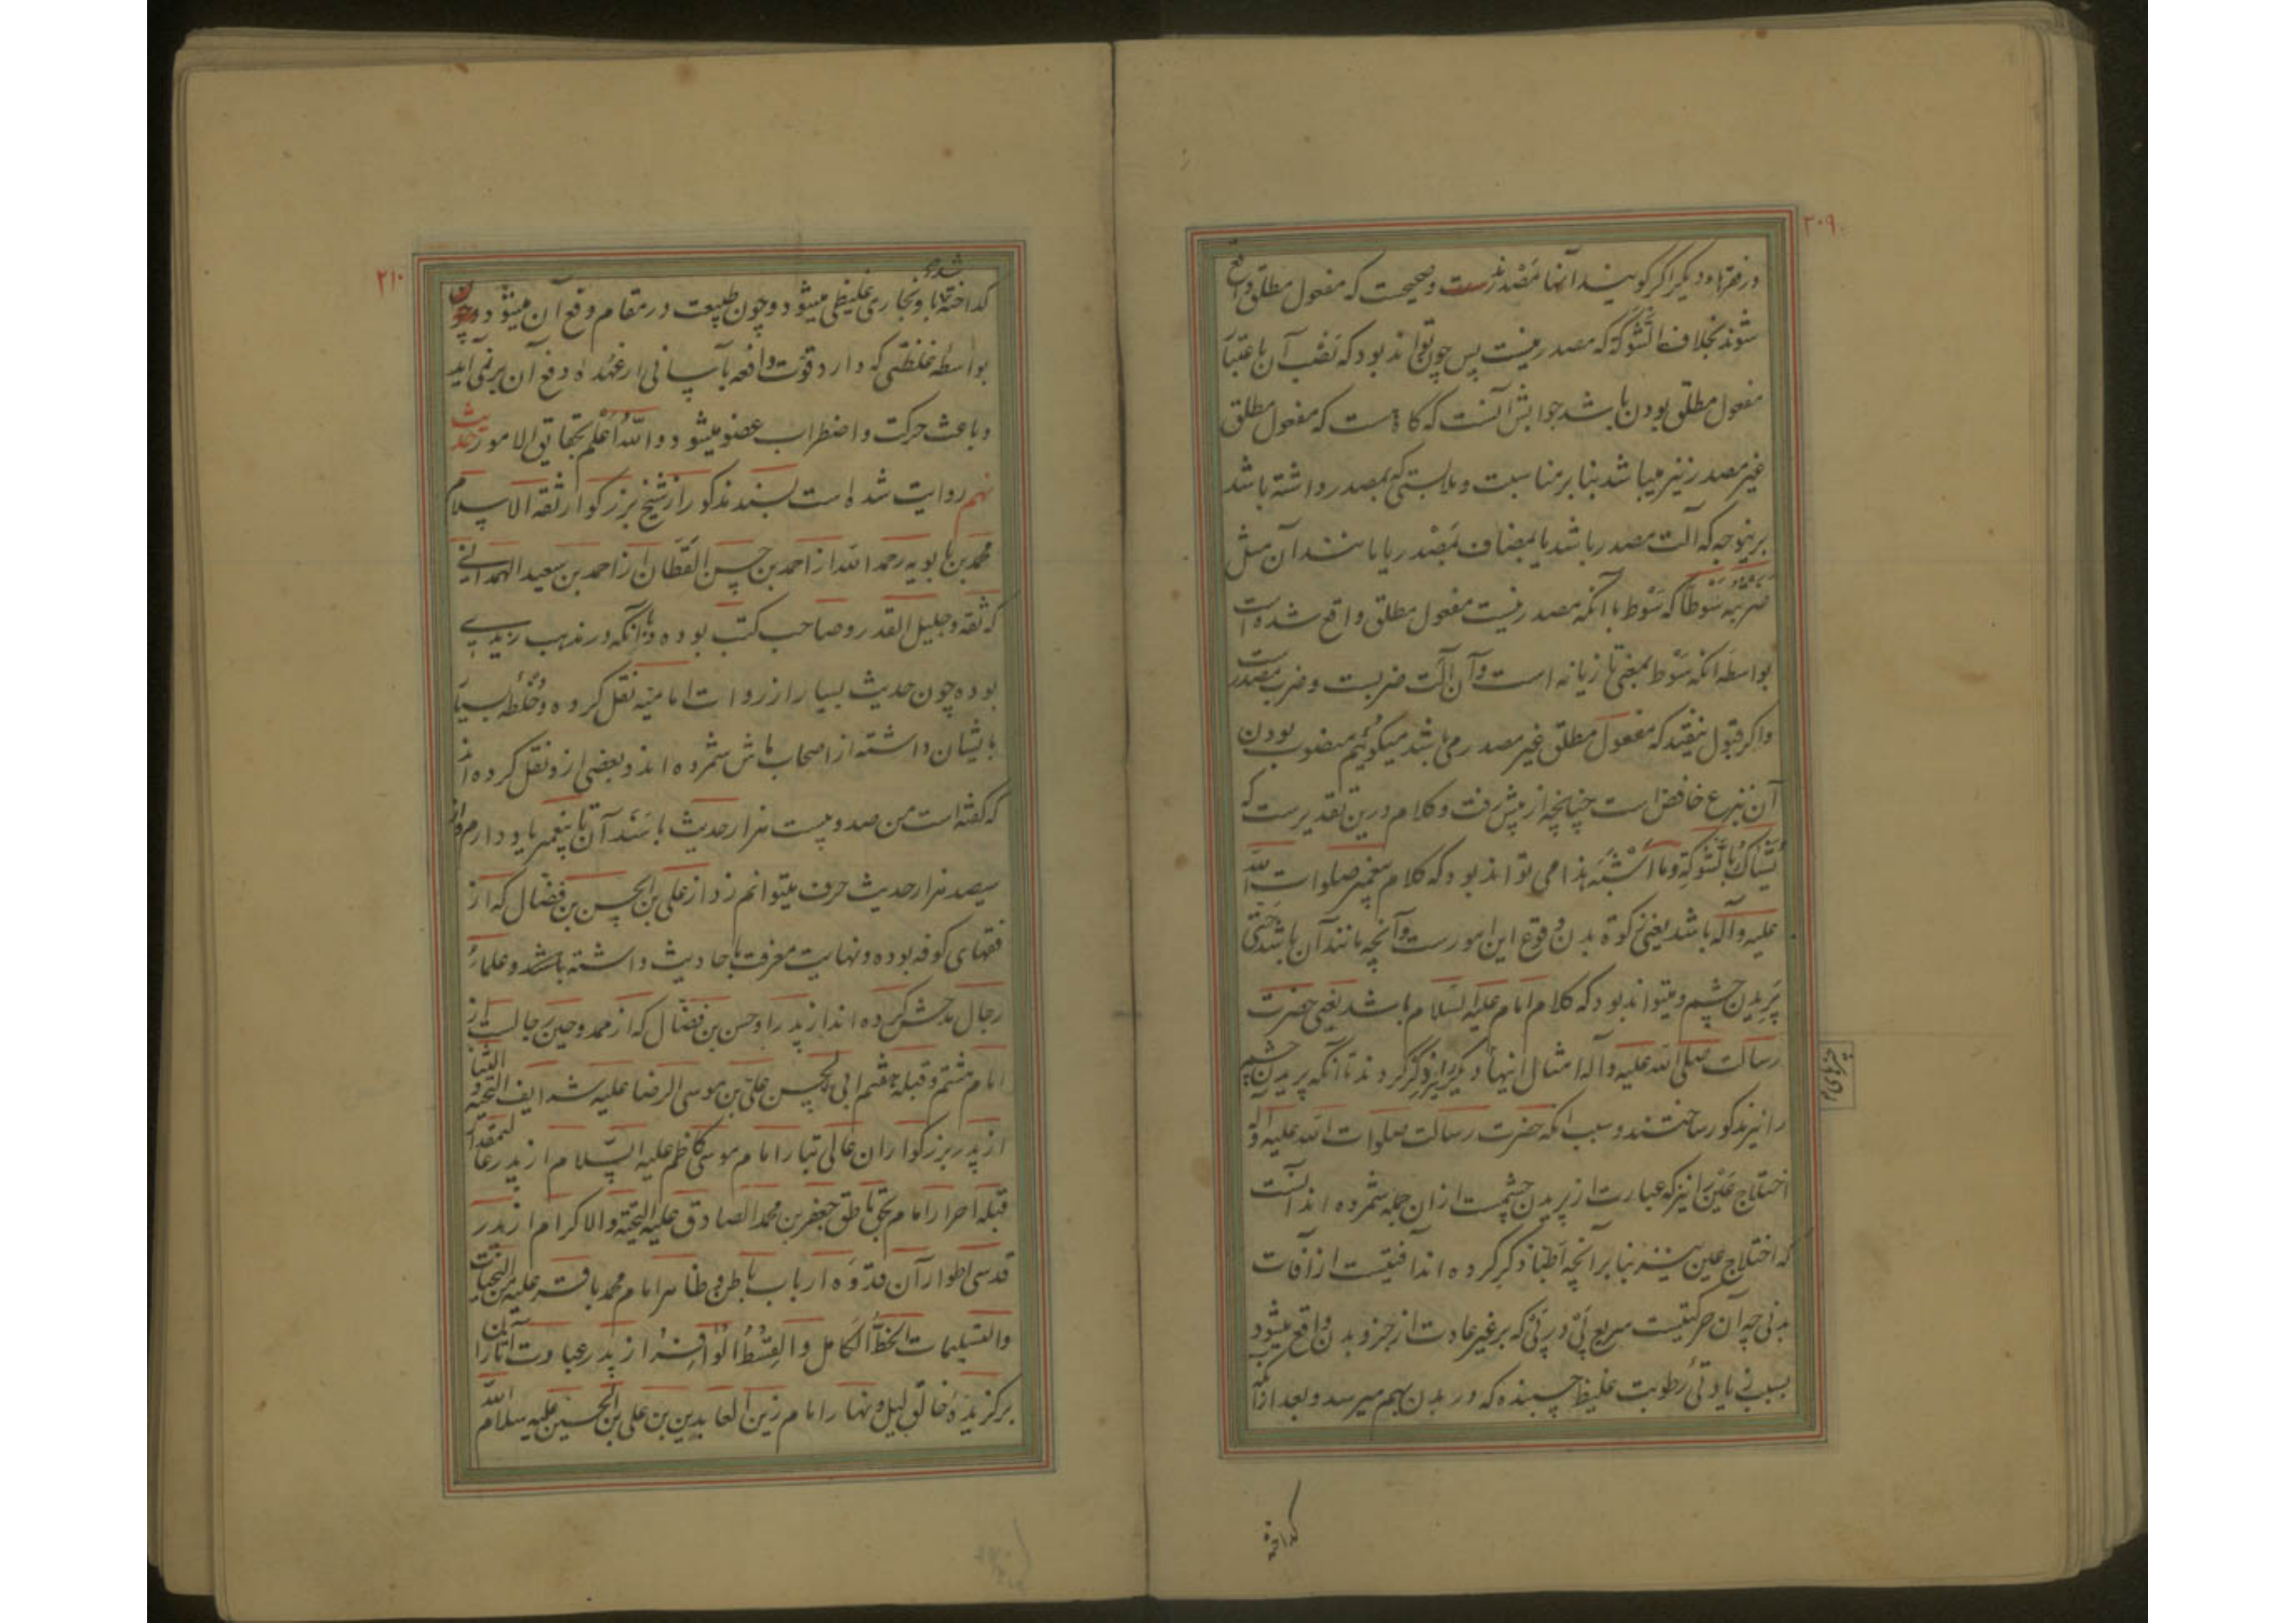 ۲۰۹
در فقرهاء دیگر اگر گویند آنها مصدرند و صحیحست که مفعول مطلق واقع
شوند بخلاف الشوکة که مصدر نیست پس چون تواند بود که نصب آن باعتبار
مفعول مطلق بودن باشد جوابش آنست که گاهست که مفعول مطلق
غیر مصدر نیز میباشد بنا بر مناسبت و ملابستی که بمصدر داشته باشد
برینوجه که آلت مصدر باشد یا مضاف بمصدر یا مانند آن مثل
ضربته سوطا که سوط با آنکه مصدر نیست مفعول مطلق واقع شده است
بواسطه آنکه سوط بمعنی تازیانه است و آن آلت ضربست و ضرب مصدرست
و اگر قبول نیفتد که مفعول مطلق غیر مصدر می باشد میگوئیم منصوب بودن
آن بنزع خافض است چنانچه از پیش رفت و کلام درین تقدیرست که
یشاک بالشوکة و ما اشبه هذا می تواند بود که کلام پیغمبر صلوات الله
علیه و آله باشد یعنی زکوة بدن وقوع این امورست و آنچه مانند آن باشد حتی
پریدن چشم و میتواند بود که کلام امام علیه السلام باشد یعنی حضرت
رسالت صلی الله علیه و آله امثال اینها دیگر نیز ذکر کردند تا آنکه پریدن چشم
را نیز مذکور ساختند و سبب آنکه حضرت رسالت صلوات الله علیه و آله
اختلاج عین را نیز که عبارت از پریدن چشمست از ان جمله شمرده اند آنست
که اختلاج عین نیز بنا بر آنچه اطبا ذکر کرده اند آفتیست از آفات
بدنی چه آن حرکتیست سریع پی در پی که بر غیر عادت از جزو بدن واقع میشود
بسبب زیادتی رطوبت غلیظ چسبنده که در بدن بهم میرسد و بعد از آنکه
گداخته
۲۱۰
گداخته شده با و بخاری غلیظی میشود و چون طبیعت در مقام دفع آن میشود و چون
بواسطه غلظتی که دارد قوت دافعه بآسانی از عهده دفع آن برنمی آید
و باعث حرکت و اضطراب عضو میشود و الله اعلم بحقایق الامور حدیث
نهم روایت شده است بسند مذکور از شیخ بزرگوار ثقة الاسلام
محمد بن بابویه رحمه الله از احمد بن حسن القطان از احمد بن سعید الهمدانی
که ثقه و جلیل القدر و صاحب کتب بوده و با آنکه در مذهب زیدی
بوده چون حدیث بسیار از روات امامیه نقل کرده و خلطه بسیار
بایشان داشته از اصحاب ماش شمرده اند و بعضی ازو نقل کرده اند
که گفته است من صد و بیست هزار حدیث با سند آن تا پیغمبر یاد دارم و از
سیصد هزار حدیث حرف میتوانم زد از علی بن الحسن بن فضال که از
فقهای کوفه بوده و نهایت معرفت باحادیث داشته و علماء
رجال مدحش کرده اند از پدر او حسن بن فضال که از ممدوحین رجالست از
امام هشتم و قبله هفتم ابی الحسن علی بن موسی الرضا علیه شرایف التحیة و الثنا
از پدر بزرگوار ان عالی تبار امام موسی کاظم علیه السلام از پدر عالیمقدار
قبله احرار امام بحق ناطق جعفر بن محمد الصادق علیه التحیة و الاکرام از پدر
قدسی اطوار آن قدوه ارباب باطن و ظاهر امام محمد باقر علیه من التحیات
و التسلیمات الحظ الکامل و القسط الوافر از پدر عبادت آثار آن
برگزیده خالق لیل و نهار امام زین العابدین بن علی بن الحسین علیه سلام الله